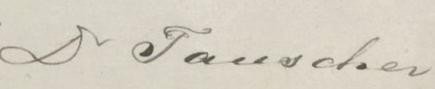 Dr Tauscher